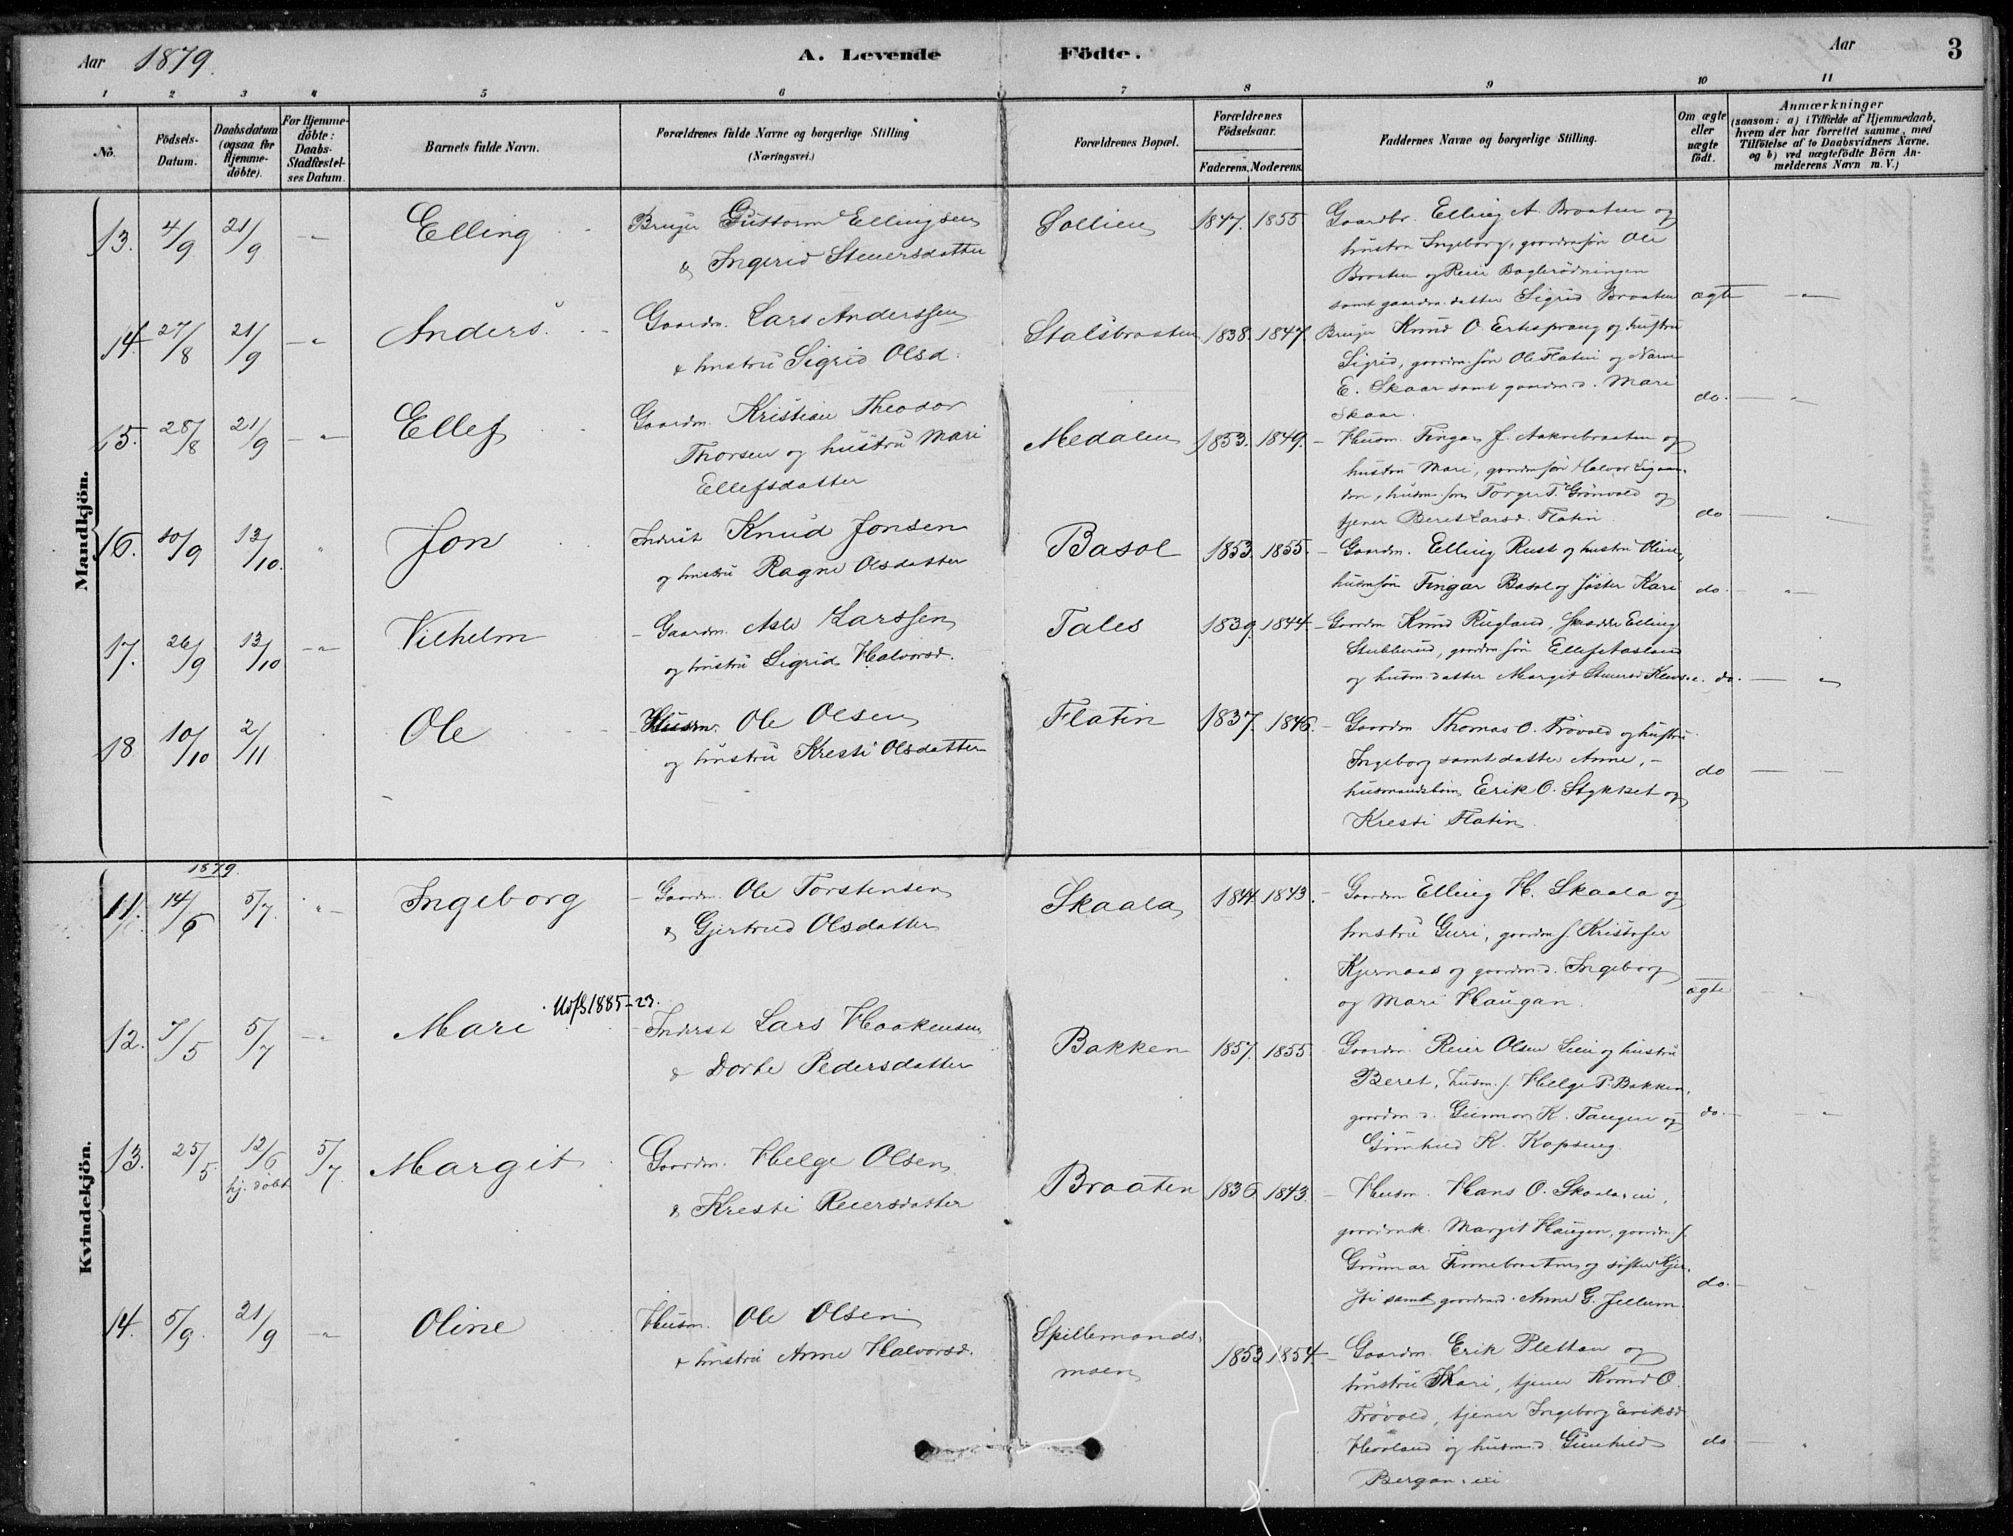 Aar 1879.
A. Levende Födte.
Aar
3
1 2 3 4 5 6 7 8 9 10 11
No.
Födsels-Datum.
Daabsdatum (ogsaa for Hjemme-döbte).
For Hjemme-döbte: Daabs-Stadfæstelses Datum.
Barnets fulde Navn.
Forældrenes fulde Navne og borgerlige Stilling (Næringsvei.)
Forældrenes Bopæl.
Forældrenes Födselsaar.
Faderens. Moderens.
Faddernes Navne og borgerlige Stilling.
Om ægte eller uægte födt.
Anmærkninger
(saasom: a) i Tilfælde af Hjemmedaab, hvem der har forrettet samme, med Tilföielse af to Daabsvidners Navne. og b) ved uægtefödte Börn Anmelderens Navn m. V.)
Mandkjön.
13. 4/9 21/9 -"- Elling
Bruger Guttorm Ellingsen
& Ingerid Steversdatter
Sollien 1847. 1855
Gaardbr. Elling A. Braaten og
hustru Ingeborg, gaardm sön Ole
Braaten og Reier Baglerödningen
samt gaardm. datter Sigrid Braaten ægte -"-
14. 27/8 21/9 -"- Anders
Gaardm. Lars Anderssen
& hustru Sigrid Olsd.
Stalsbraaten 1838. 1847.
Bruger Knud O. Ertesprang og hustru
Sigrid, gaardm. sön Ole Flatin og
E. Skaar samt gaardm. d. Mari
Skaar. do. -"-
15. 28/8 21/9 -"- Ellef
Gaardm. Kristian Theodor
Thorsen og hustru Mari
Ellefsdatter
Medalen 1853. 1849.
Husm. Fingar J. Aakrebraaten og
hustru Mari, gaardm sön Halvor
husm. sön Torger T. Grönvold og
tjener Beret Larsd. Flatin do -"-
16. 10/9 12/10. " Jon
Inderst Knud Jonsen
og hustru Ragne Olsdatter
Basol 1853. 1855.
Gaardm. Elling Rust og hustru Oline,
husm sön Fingar Basol og söster Kari do. -"-
17. 26/9 12/10 -"- Vilhelm
Gaardm. Asle Larssen
og hustru Sigrid Halvorsd.
Tales 1839. 1844.
Gaardm Knud Rugland, Elling
Stubberud, gaardm. sön Ellef Aasland
og husm. datter Margit do. -"-
18. 10/10 2/11 Ole
Husm. Ole Olsen
og hustru Kresti Olsdatter
Flatin 1837. 1846.
Gaardm Thomas O. Trövold og hustru
Ingeborg samt datter Anne,
husmandsbörn Erik O. Stykket og
Kresti Flatin. do
Kvindekjön.
1879.
11. 14/6 5/7. -"- Ingeborg
Gaardm. Ole Torstensen
& Gjertrud Olsdatter
Skaala 1844 1843.
Gaardm Elling H. Skaala og
hustru Guri, gaardm s. Kristofer
Kjernaas og gaardm. d. Ingeborg
og Mari Haugan. ægte "
12. 7/5 5/7 -"- Mari Udfl 1885-23.
Inderst Lars Haakensen
& Dorte Pedersdatter
Bakken 1857. 1855.
Gaardm. Reier Olsen Lien og hustru
Beret, husm. s. Helge P. Bakken,
gaardm d. Gunnor K. Tangen og
Gunhild K. Kopseng. do. "
13. 25/5 12/6 hj. döbt 5/7. Margit
Gaardm. Helge Olsen
& Kresti Reiersdatter
Braaten 1836 1843.
Husm. Hans O. Skaalsvei,
gaardmk. Margit Haugen, gaardm s.
Gunnar Finnebraaten og söster
samt gaardm d. Anne G. Jellum do. "
14. 5/9. 21/9 " Oline
Husm. Ole Olsen
& hustru Anne Halvorsd.
Spillemands-
moen 1853 1854.
Gaardm. Erik Plettan og
hustru Kari, tjener Knud O.
Trövold, tjener Ingeborg Eriksd.
Hovland og husm. d. Gunhild
do "